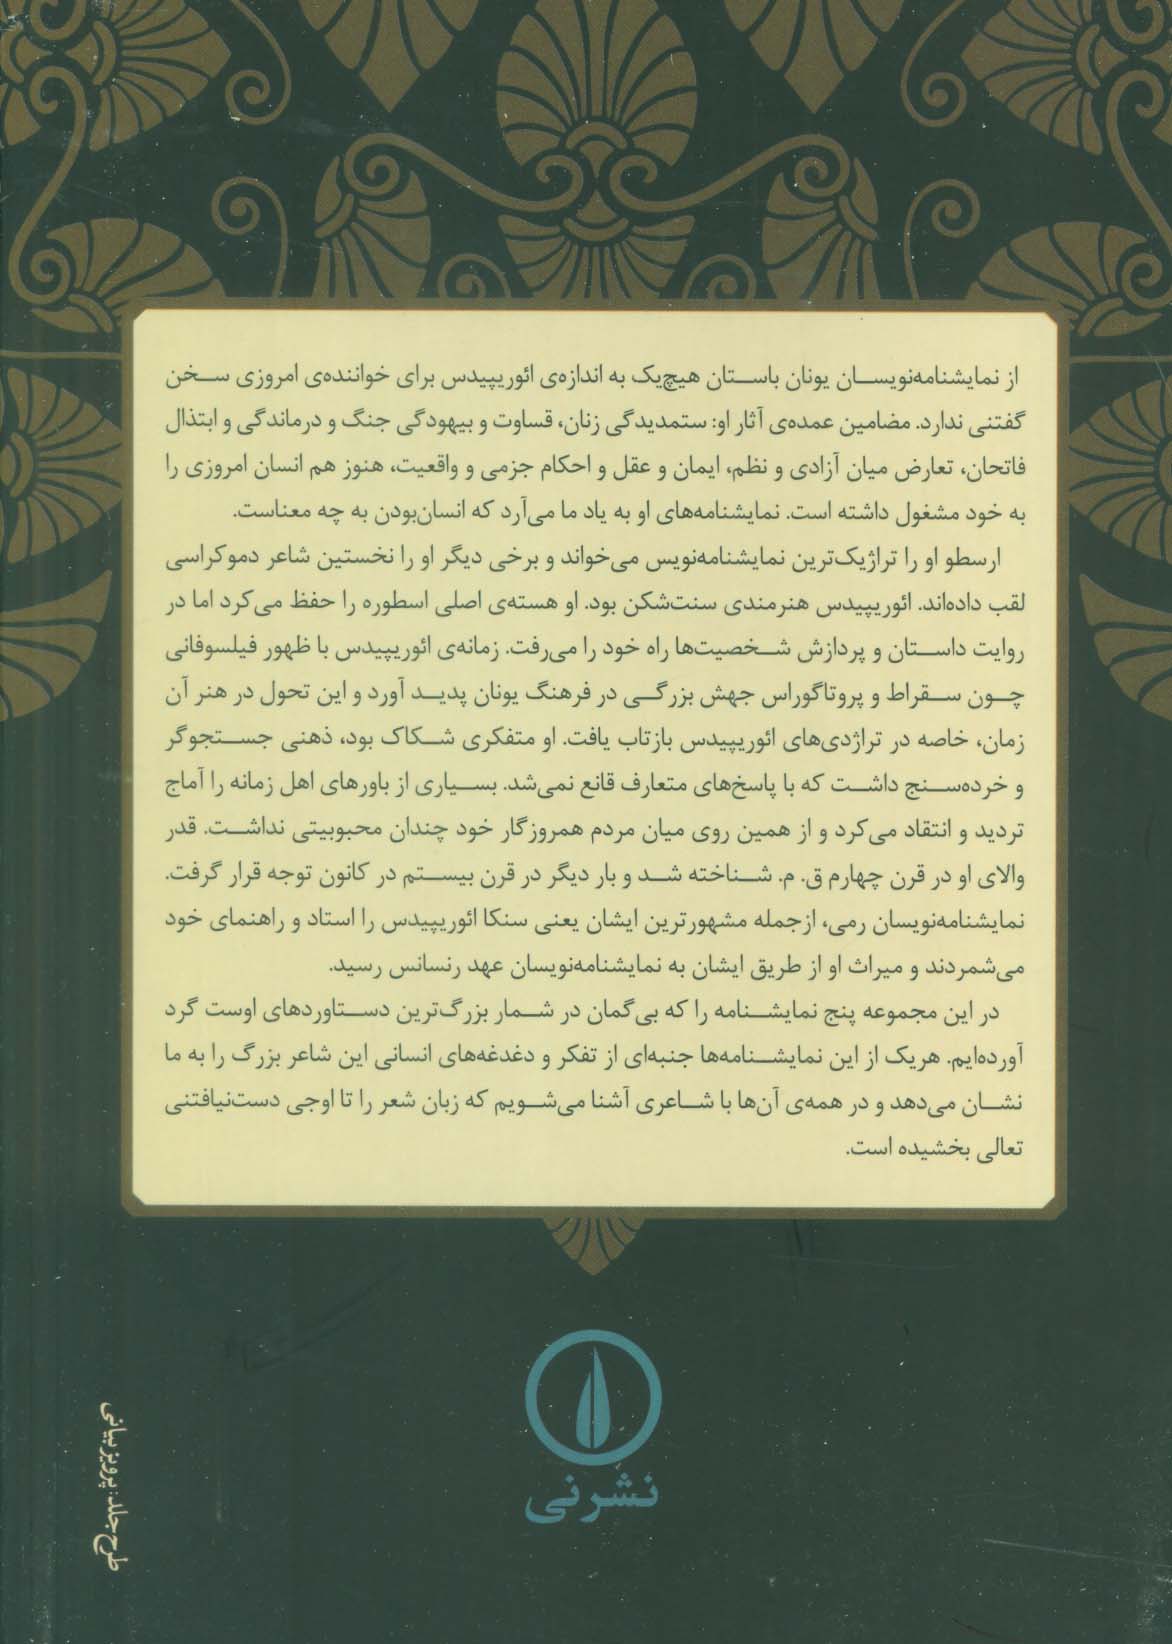 از نمایشنامه‌نویسان یونان باستان هیچ‌یک به اندازه‌ی ائوریپیدس برای خواننده‌ی امروزی سخن
گفتنی ندارد. مضامین عمده‌ی آثار او: ستمدیدگی زنان، قساوت و بیهودگی جنگ و درماندگی و ابتذال
فاتحان، تعارض میان آزادی و نظم، ایمان و عقل و احکام جزمی و واقعیت، هنوز هم انسان امروزی را
به خود مشغول داشته است. نمایشنامه‌های او به یاد ما می‌آرد که انسان‌بودن به چه معناست.
ارسطو او را تراژیک‌ترین نمایشنامه‌نویس می‌خواند و برخی دیگر او را نخستین شاعر دموکراسی
لقب داده‌اند. ائوریپیدس هنرمندی سنت‌شکن بود. او هسته‌ی اصلی اسطوره را حفظ می‌کرد اما در
روایت داستان و پردازش شخصیت‌ها راه خود را می‌رفت. زمانه‌ی ائوریپیدس با ظهور فیلسوفانی
چون سقراط و پروتاگوراس جهش بزرگی در فرهنگ یونان پدید آورد و این تحول در هنر آن
زمان، خاصه در تراژدی‌های ائوریپیدس بازتاب یافت. او متفکری شکاک بود، ذهنی جستجوگر
و خرده‌سنج داشت که با پاسخ‌های متعارف قانع نمی‌شد. بسیاری از باورهای اهل زمانه را آماج
تردید و انتقاد می‌کرد و از همین روی میان مردم همروزگار خود چندان محبوبیتی نداشت. قدر
والای او در قرن چهارم ق. م. شناخته شد و بار دیگر در قرن بیستم در کانون توجه قرار گرفت.
نمایشنامه‌نویسان رمی، ازجمله مشهورترین ایشان یعنی سنکا ائوریپیدس را استاد و راهنمای خود
می‌شمردند و میراث او از طریق ایشان به نمایشنامه‌نویسان عهد رنسانس رسید.
در این مجموعه پنج نمایشنامه را که بی‌گمان در شمار بزرگ‌ترین دستاوردهای اوست گرد
آورده‌ایم. هریک از این نمایشنامه‌ها جنبه‌ای از تفکر و دغدغه‌های انسانی این شاعر بزرگ را به ما
نشان می‌دهد و در همه‌ی آن‌ها با شاعری آشنا می‌شویم که زبان شعر را تا اوجی دست‌نیافتنی
تعالی بخشیده است.
نشر نی
طرح جلد: پرویز بیانی